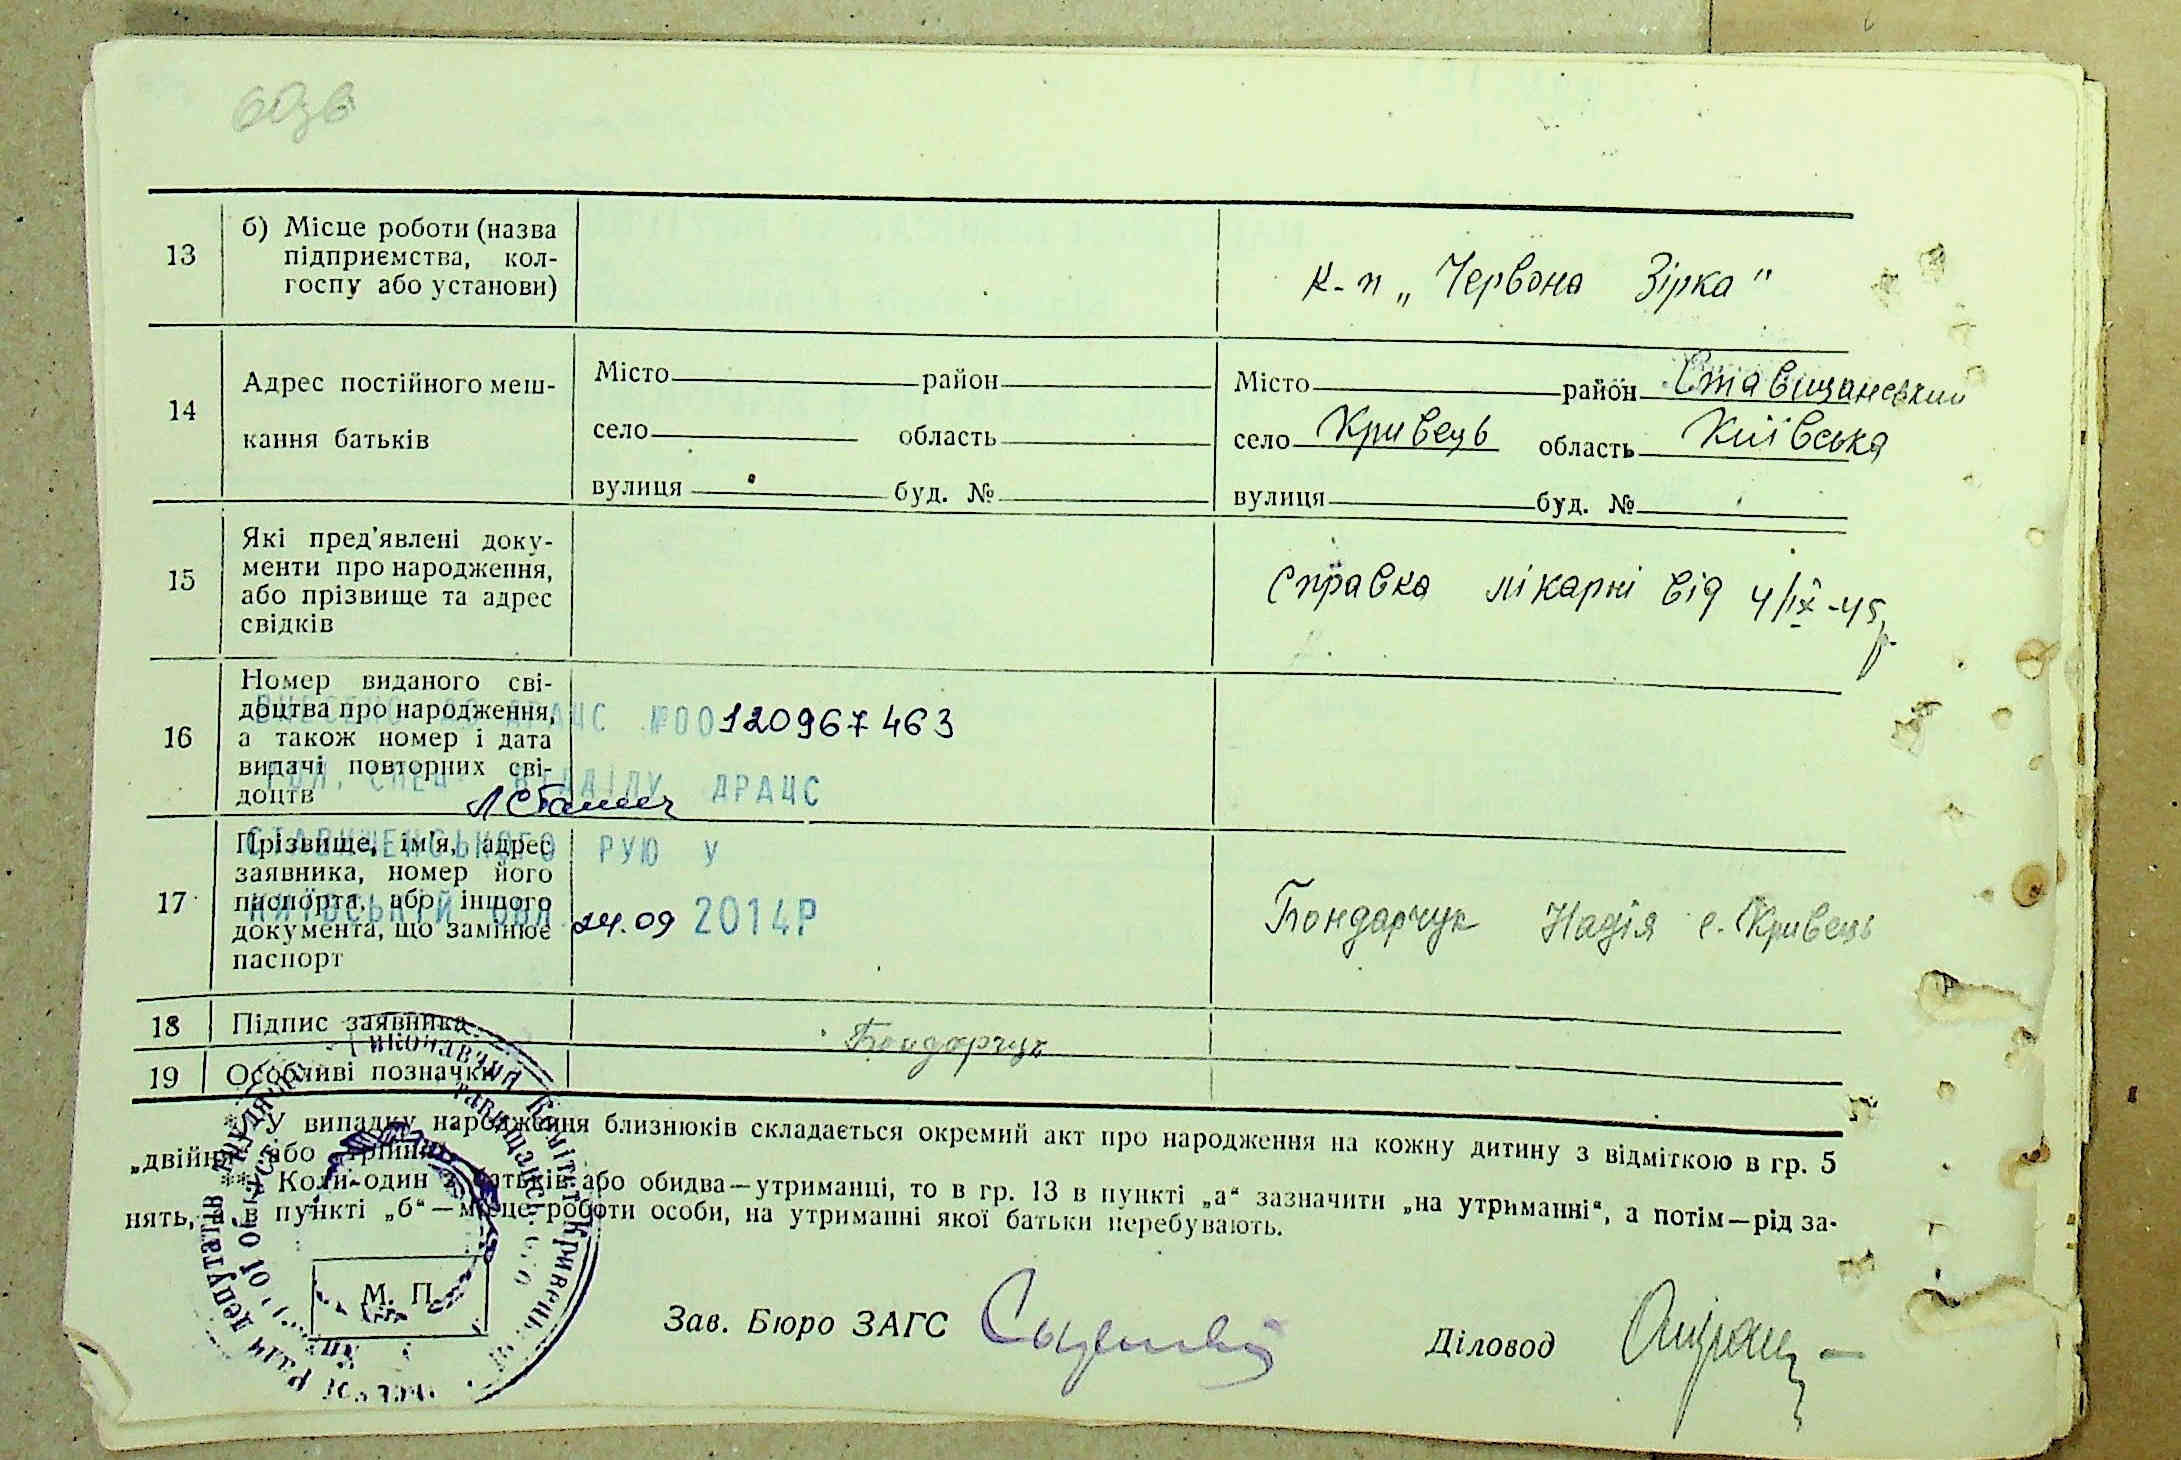 13
б) Місце роботи (назва
підприємства, кол-
госпу або установи)
к-п „Червона Зірка"
14
Адрес постійного меш-
кання батьків
Місто район
село область
вулиця буд. №
Місто район Ставищанський
село Кривець область Київська
вулиця буд. №
15
Які пред'явлені доку-
менти про народження,
або прізвище та адрес
свідків
Справка лікарні від 4/IX-45 р.
16
Номер виданого сві-
доцтва про народження,
а також номер і дата
видачі повторних сві-
доцтв
ДРАЦС №00120967463
ВІДДІЛУ ДРАЦС
17
Прізвище, ім'я, адрес
заявника, номер його
паспорта, або іншого
документа, що замінює
паспорт
СТАВИЩЕНСЬКОГО РУЮ У
КИЇВСЬКІЙ ОБЛ. 24.09 2014Р
Бондарчук Надія с. Кривець
18
Підпис заявника
Бондарчук
19
Особливі позначки
* У випадку народження близнюків складається окремий акт про народження на кожну дитину з відміткою в гр. 5
„двійня" або „трійня".
** Коли один з батьків або обидва—утриманці, то в гр. 13 в пункті „а" зазначити „на утриманні", а потім—рід за-
нять, а в пункті „б"—місце роботи особи, на утриманні якої батьки перебувають.
М. П.
Зав. Бюро ЗАГС
Діловод